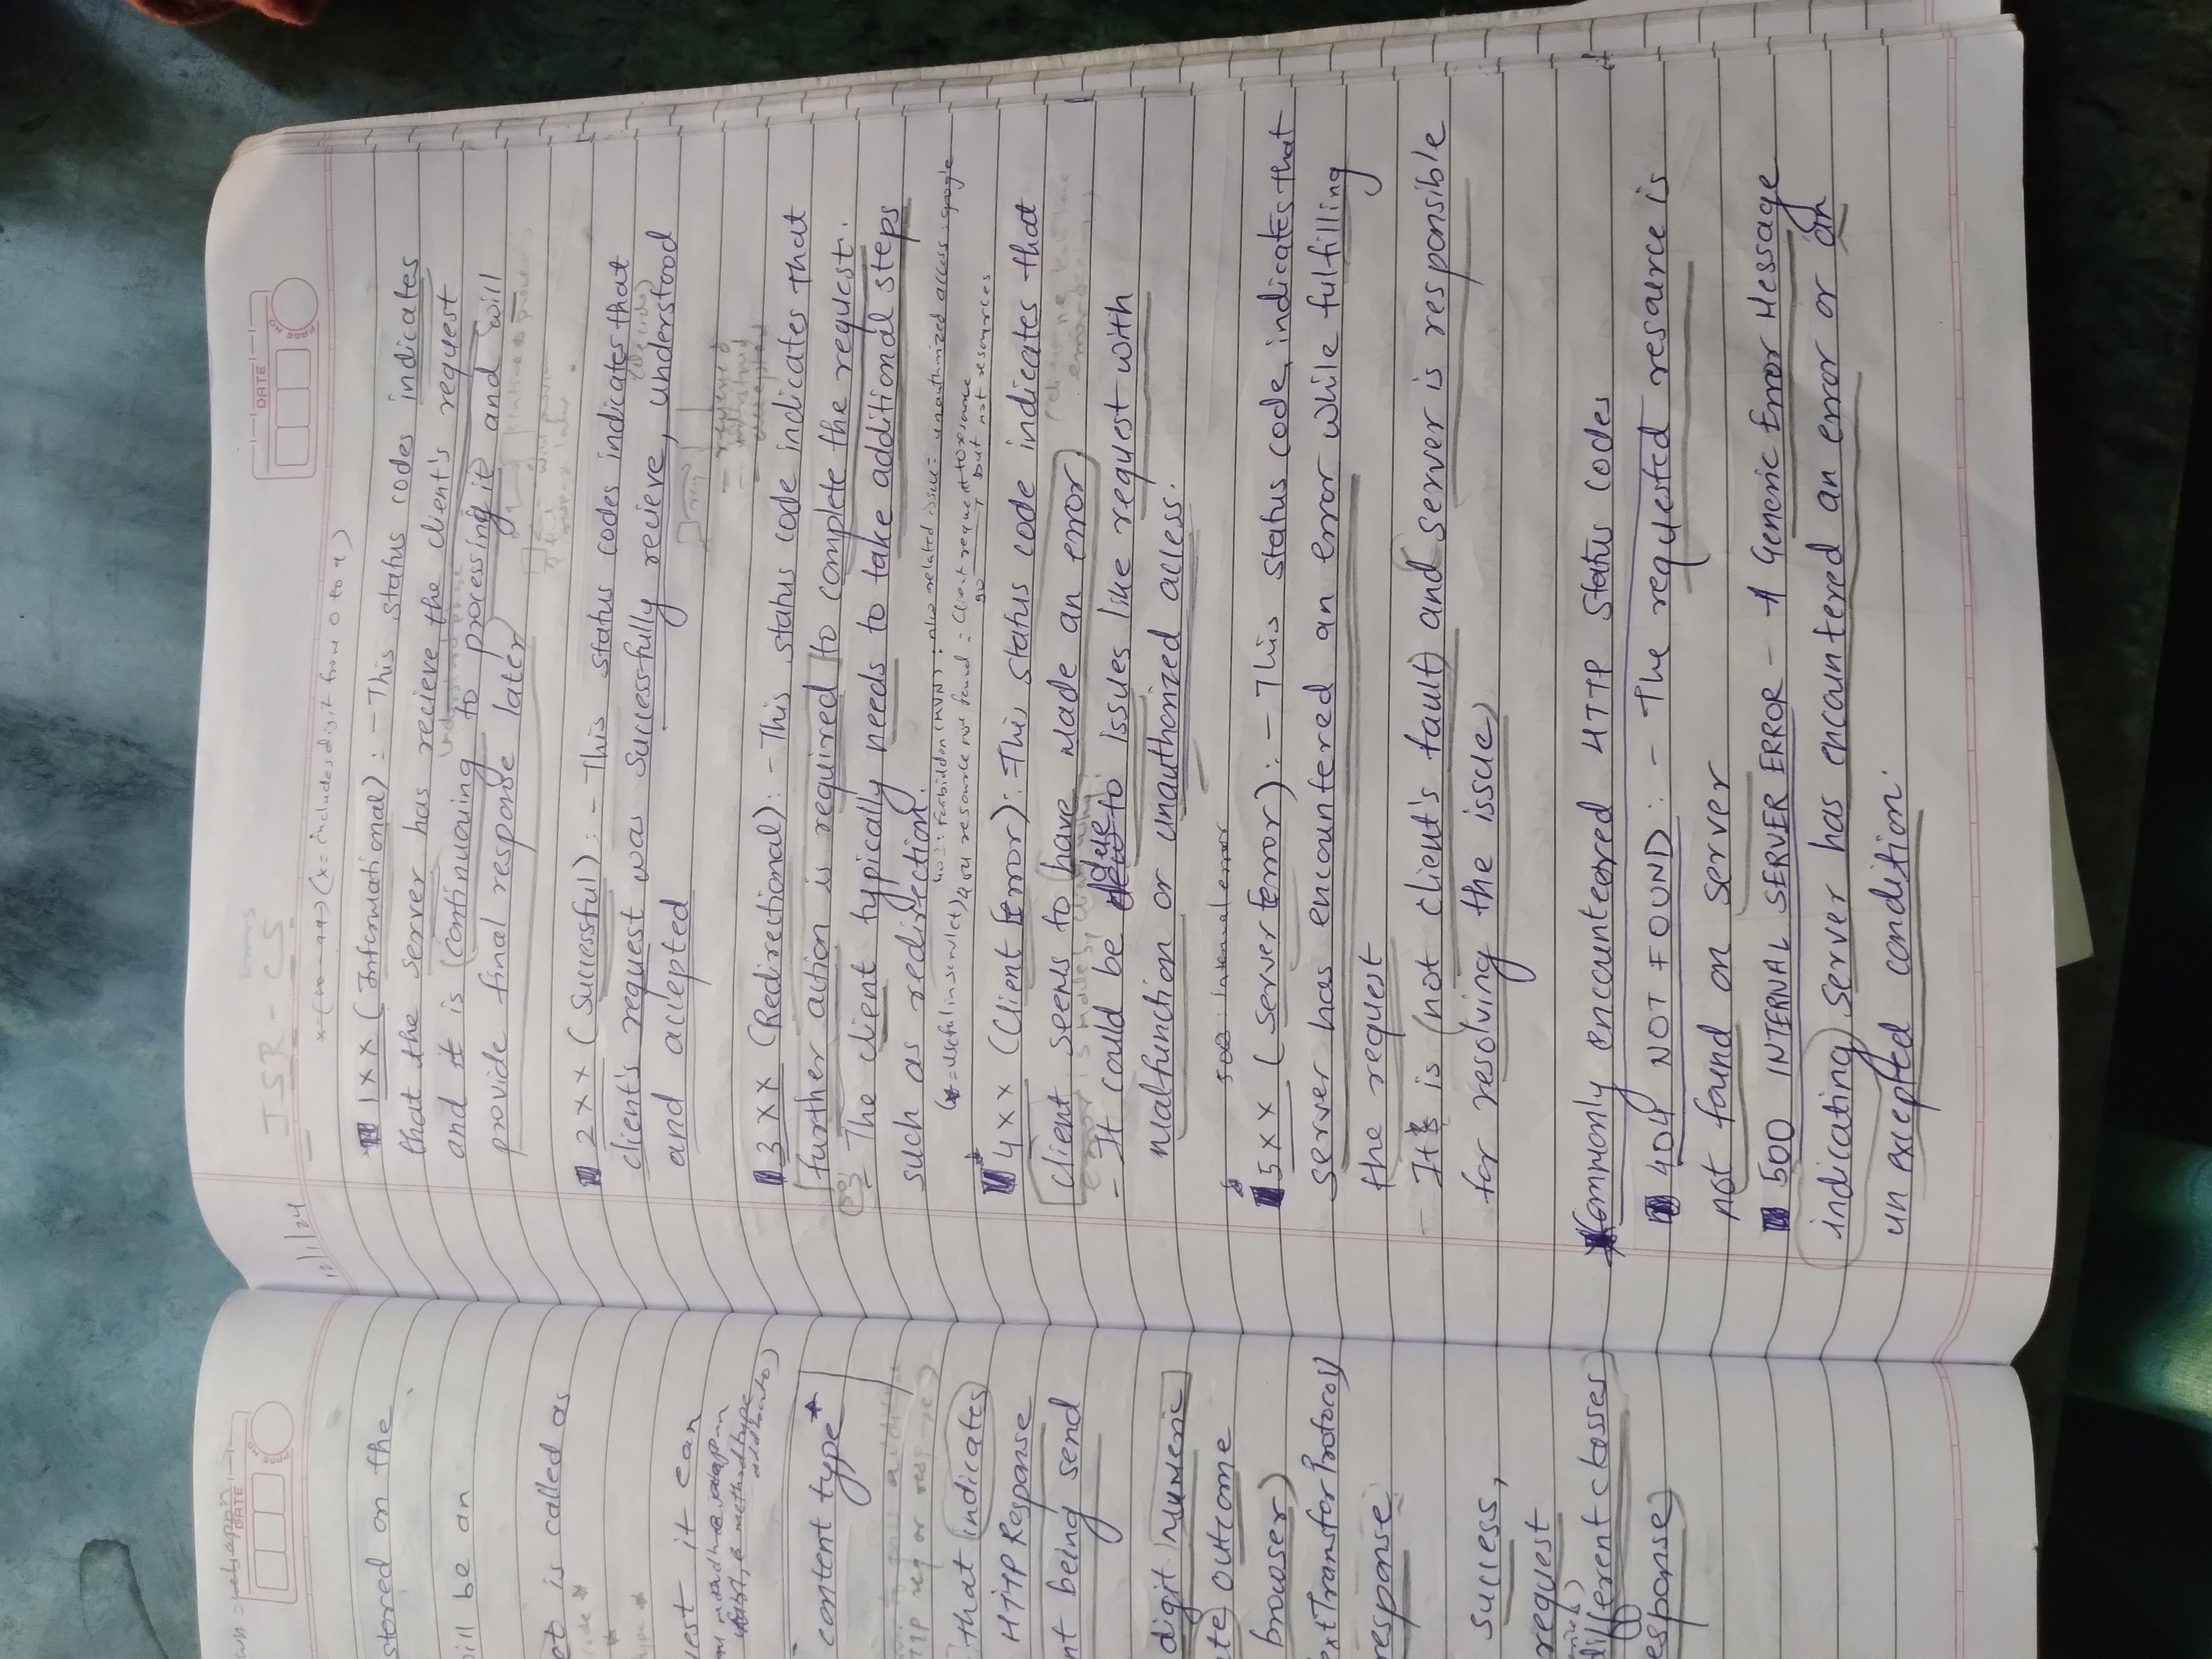 DATE
PAGE NO
stored on the
will be an
is called as
code *
*
type *
it can
content type*
that indicates
HTTP Response
being send
digit numeric
outcome
browser)
Text Transfer Protocol)
response
success,
request
different classes
response)
12/1/24
Errors
ISR - CS
DATE
PAGE NO
(x = includes digit from 0 to 9)
1xx (Informational) : - This status codes indicates
that the server has recieve the client's request
and it is (continuouing to processing it) and will
provide final response later
2xx (Successful) : - This status codes indicates that
client's request was successfully recieve, understood
and accepted
3xx (Redirectional) : - This status code indicates that
further action is required to complete the request.
- The client typically needs to take additional steps
such as redirection.
403: forbidden (MVN) : also related issue: unauthorized access: google
(* = useful in servlet) 404 resource not found = client request to resource
go but not resources
4xx (Client Error) : This status code indicates that
client seems to have made an error)
- It could be due to issues like request with
malfunction or unauthorized access.
500 : internal error
5xx (Server Error) : - This status code, indicates that
server has encountered an error while fulfilling
the request
- It is (not client's fault) and server is responsible
for resolving the issue)
*Commonly encountered HTTP Status Codes
404 NOT FOUND : - The requested resource is
not found on server
500 INTERNAL SERVER ERROR - A Generic Error Message
indicating) server has encountered an error or an
un excepted condition.